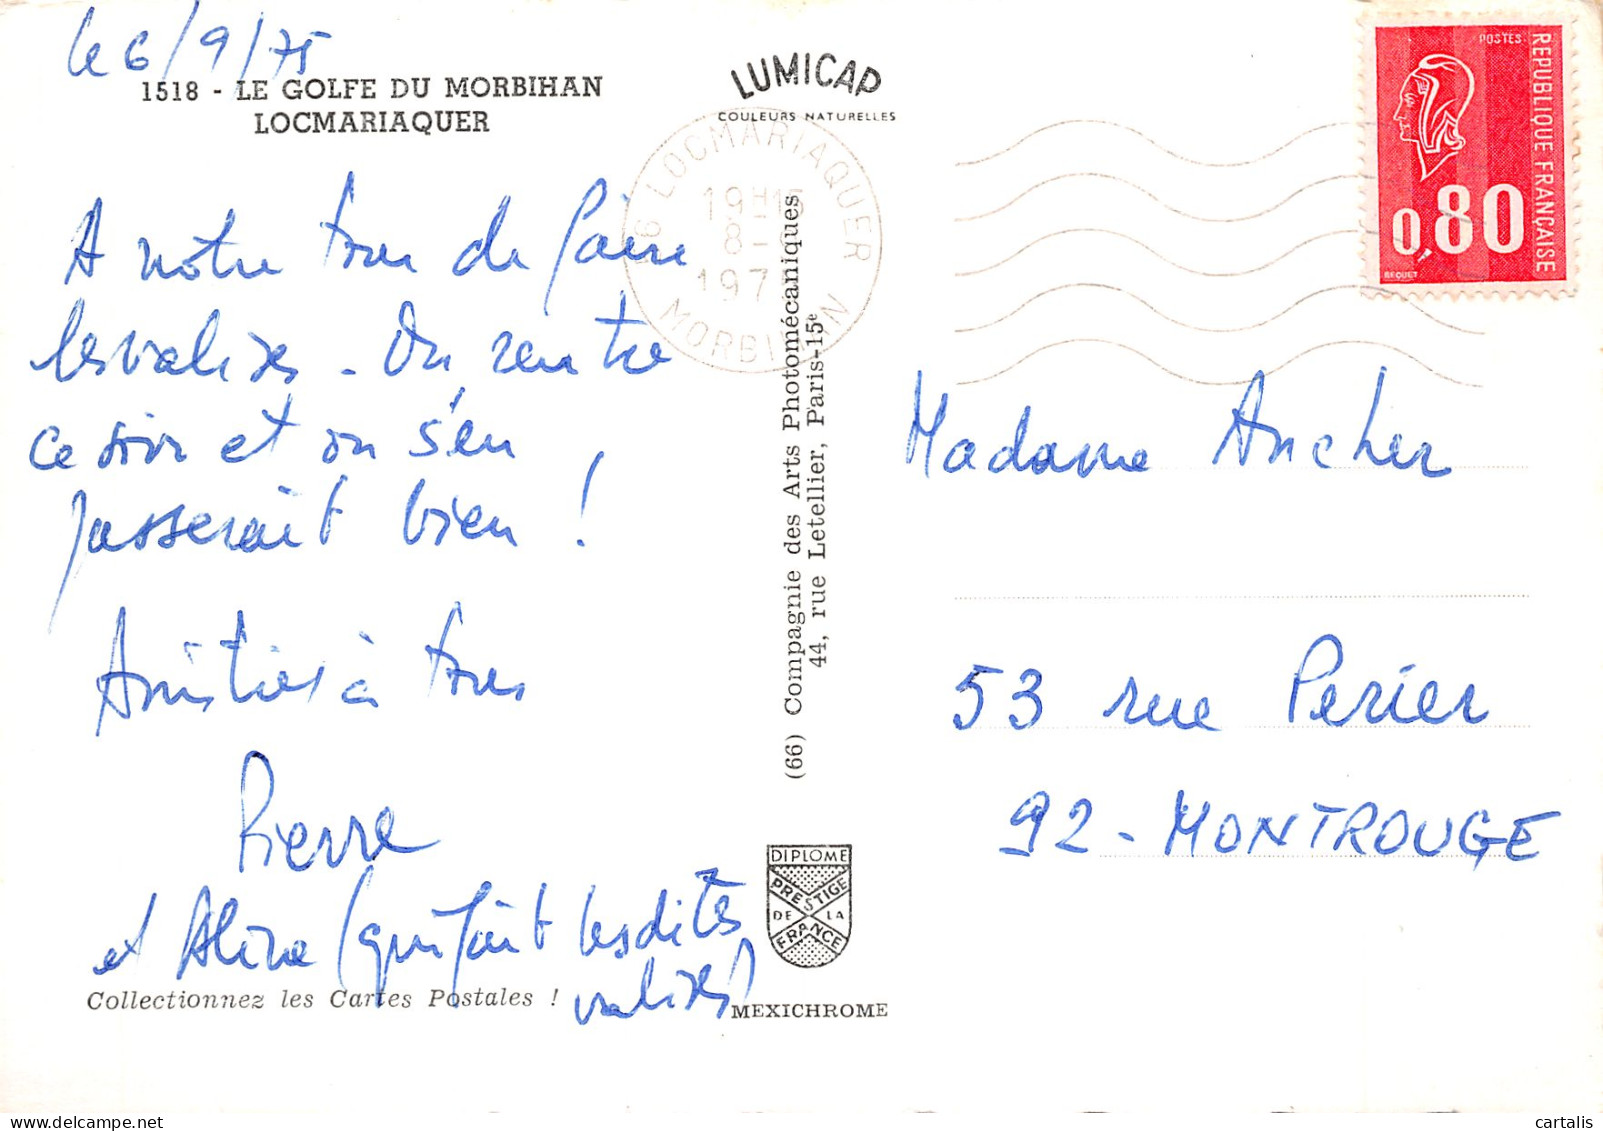 le 6/9/75
1518 - LE GOLFE DU MORBIHAN
LOCMARIAQUER
A notre tour de faire
les valises - On rentre
ce soir et on s'en
passerait bien !
Amitiés à tous
Pierre
et Aline (qui fait les dites
valises)
Collectionnez les Cartes Postales !
LUMICAP
COULEURS NATURELLES
56 LOCMARIAQUER
19H15
8 - 9
1975
MORBIHAN
(66) Compagnie des Arts Photomécaniques
44, rue Letellier, Paris-15e
DIPLOME
PRESTIGE
DE LA
FRANCE
MEXICHROME
POSTES
REPUBLIQUE FRANÇAISE
0,80
BEQUET
Madame Ancher
53 rue Perier
92 - MONTROUGE
cartalis